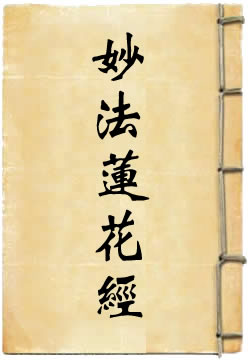 妙法蓮花經